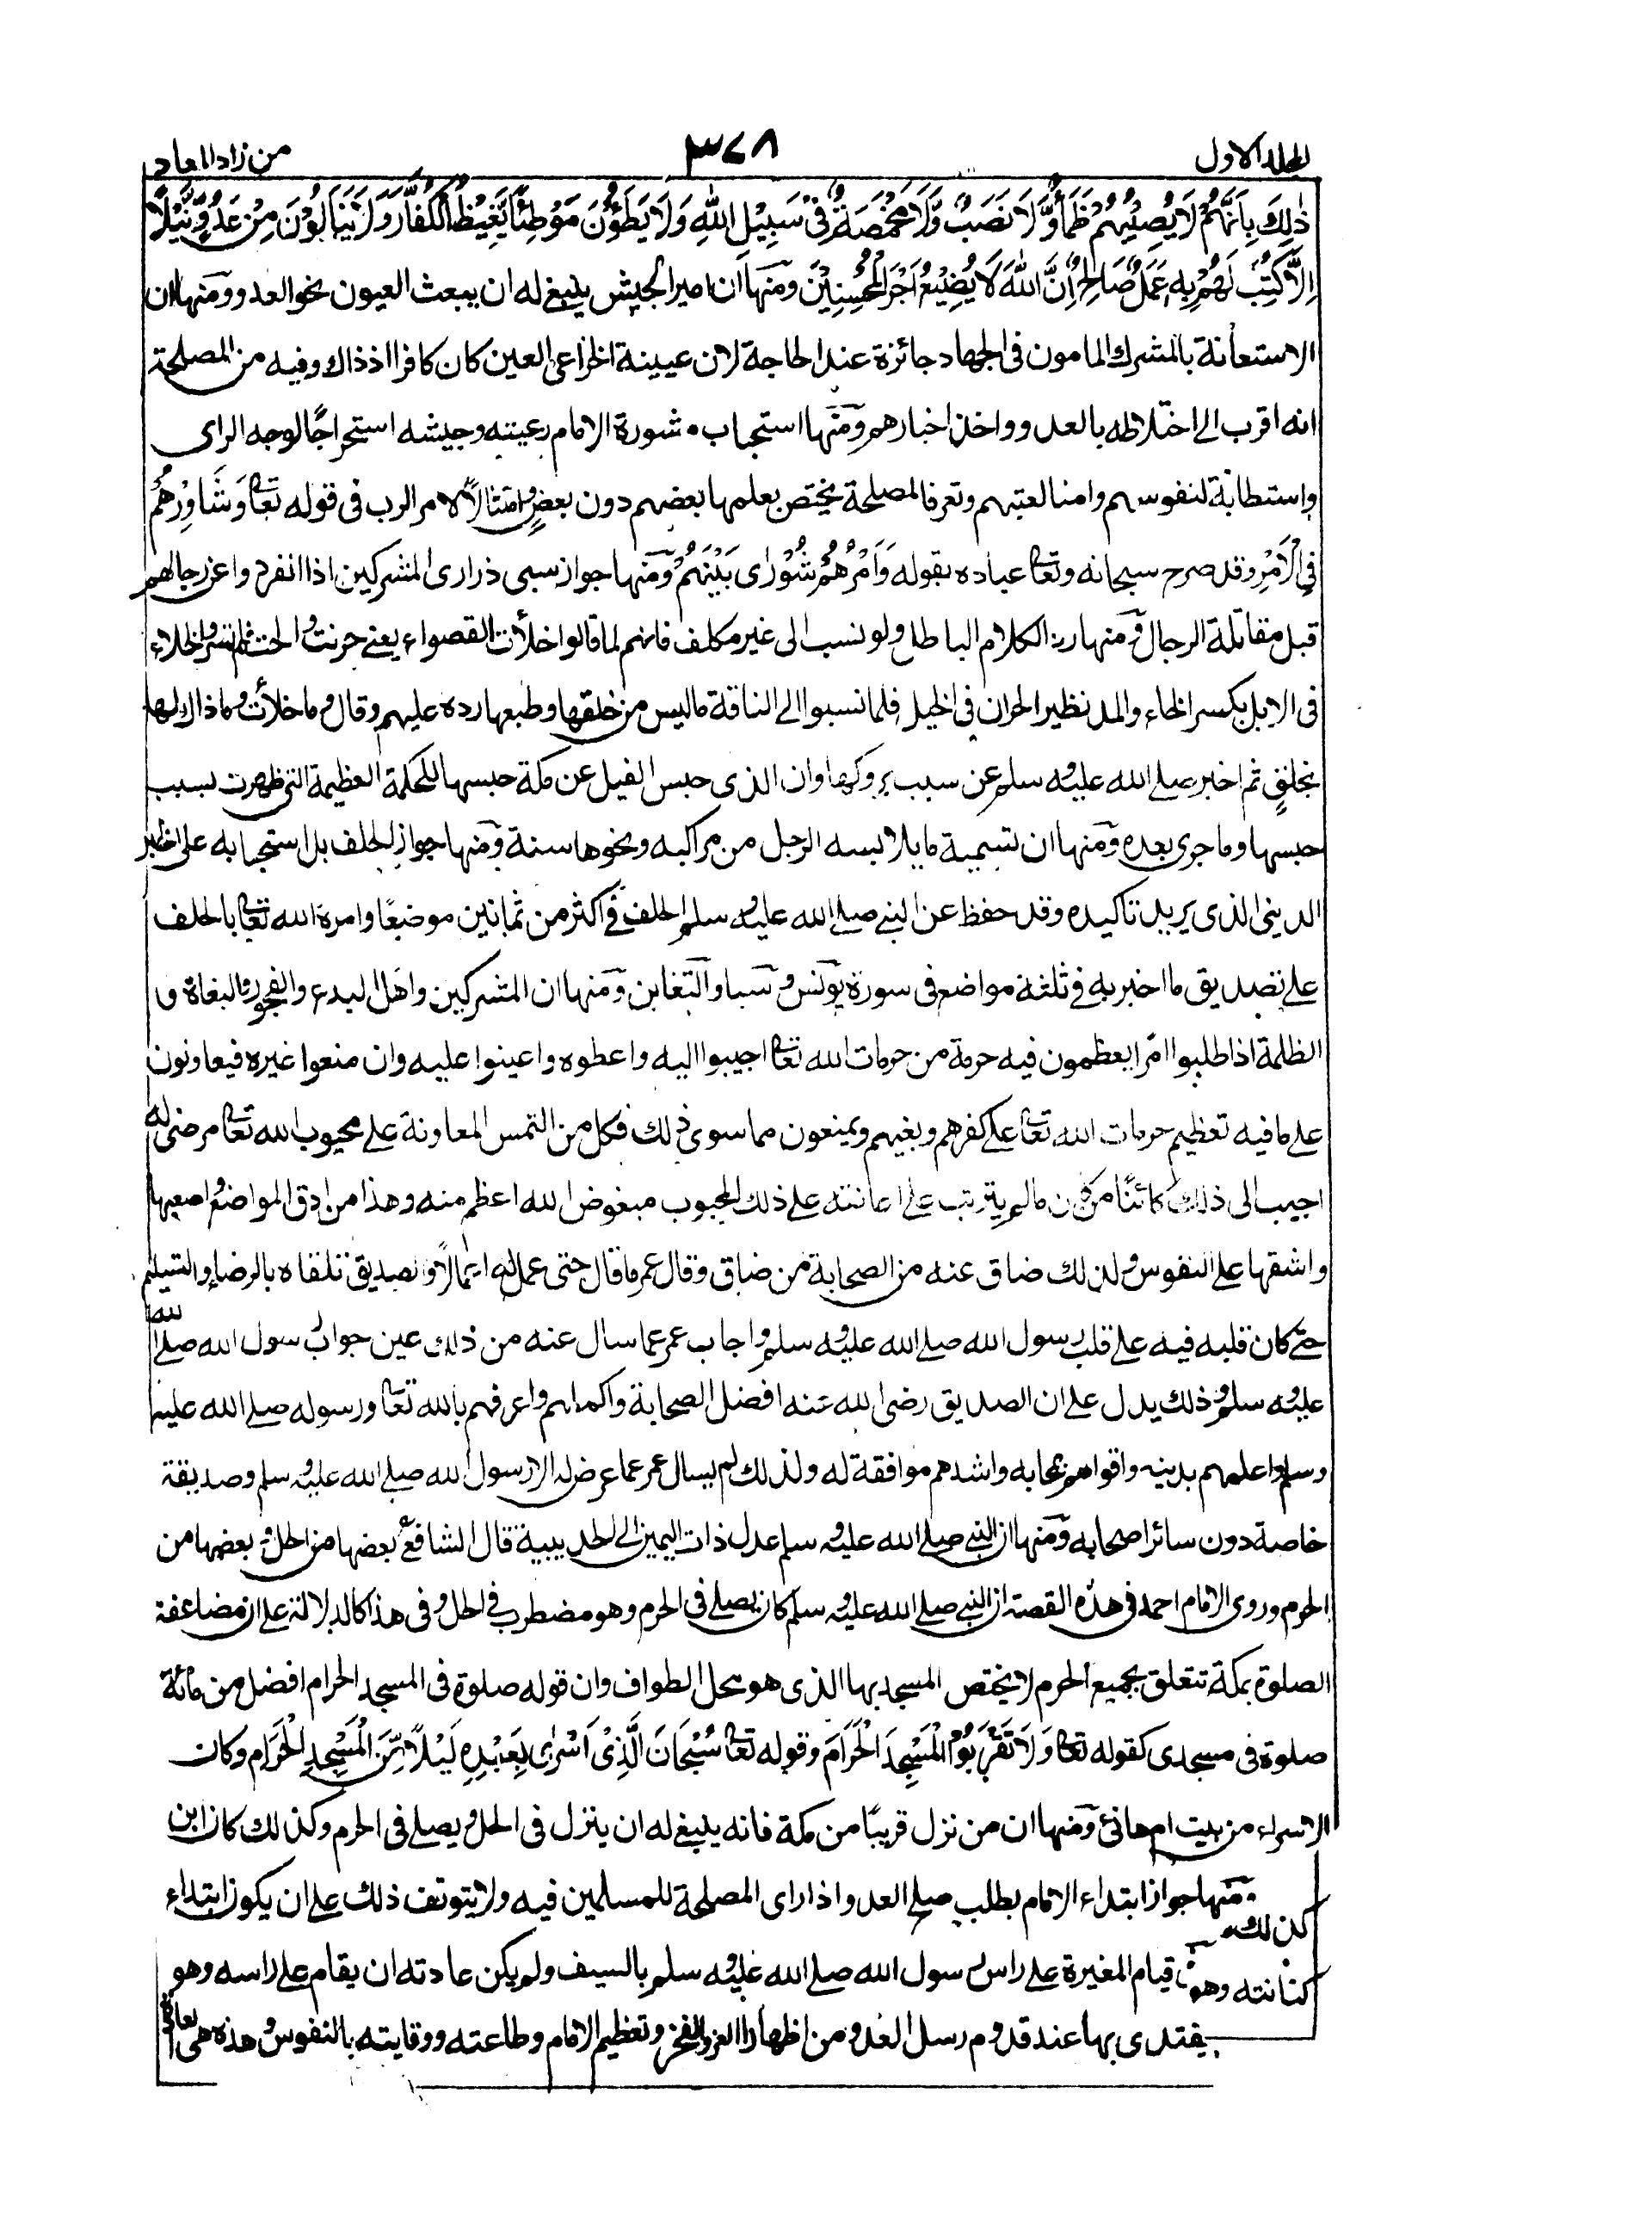 المجلد الاول
٣٧٨
من زاد المعاد
ذٰلِكَ بِاَنَّهُمْ لَا يُصِيْبُهُمْ ظَمَأٌ وَّلَا نَصَبٌ وَّلَا مَخْمَصَةٌ فِىْ سَبِيْلِ اللّٰهِ وَلَا يَطَؤُنَ مَوْطِئًا يَّغِيْظُ الْكُفَّارَ وَلَا يَنَالُوْنَ مِنْ عَدُوٍّ نَّيْلًا
اِلَّا كُتِبَ لَهُمْ بِهٖ عَمَلٌ صَالِحٌ اِنَّ اللّٰهَ لَا يُضِيْعُ اَجْرَ الْمُحْسِنِيْنَ ومنها ان امير الجيش ينبغى له ان يبعث العيون نحو العدو ومنها ان
الاستعانة بالمشرك المامون فى الجهاد جائزة عند الحاجة لان عيينة الخزاعى العين كان كافرا اذ ذاك وفيه من المصلحة
انه اقرب الى اختلاطه بالعدو واخذ اخبارهم ومنها استحباب مشورة الامام رعيته وجيشه استخراجًا لوجه الراى
واستطابة لنفوسهم وامنا لعتبهم وتعرفا لمصلحة يختص بعلمها بعضهم دون بعضٍ وامتثالًا لامر الرب فى قوله تعالى وَشَاوِرْهُمْ
فِى الْاَمْرِ وقد صرح سبحانه وتعالى عباده بقوله وَاَمْرُهُمْ شُوْرٰى بَيْنَهُمْ ومنها جواز سبى ذرارى المشركين اذا انفردوا عن رجالهم
قبل مقاتلة الرجال ومنها رد الكلام الباطل ولو نسب الى غير مكلف فانهم لما قالوا خلأت القصواء يعنى حرنت والحت فلم تسر والخلاء
فى الابل بكسر الخاء والمد نظير الحران فى الخيل فلما نسبوا الى الناقة ما ليس من خلقها وطبعها رده عليهم وقال وما خلأت وما ذاك لها
بخلقٍ ثم اخبر صلى الله عليه وسلم عن سبب بروكها وان الذى حبس الفيل عن مكة حبسها للحكمة العظيمة التى ظهرت بسبب
حبسها وما جرى بعده ومنها ان تسمية ما يلابسه الرجل من مراكبه ونحوها سنة ومنها جواز الحلف بل استحبابه على الخبر
الدينى الذى يريد تاكيده وقد حفظ عن النبى صلى الله عليه وسلم الحلف فى اكثر من ثمانين موضعًا وامره الله تعالى بالحلف
على تصديق ما اخبر به فى ثلثة مواضع فى سورة يونس وسبا والتغابن ومنها ان المشركين واهل البدع والفجور والبغاة و
الظلمة اذا طلبوا امرا يعظمون فيه حرمة من حرمات الله تعالى اجيبوا اليه واعطوه واعينوا عليه وان منعوا غيره فيعاونون
على ما فيه تعظيم حرمات الله تعالى على كفرهم وبغيهم ويمنعون مما سوى ذلك فكل من التمس المعاونة على محبوب الله تعالى مرضى له
اجيب الى ذلك كائنًا من كان ما لم يترتب على اعانته على ذلك المحبوب مبغوض الله اعظم منه وهذا من ادق المواضع واصعبها
واشقها على النفوس ولذلك ضاق عنه من الصحابة من ضاق وقال عمر ما قال حتى عمل له اعمالًا والصديق تلقاه بالرضاء والتسليم
حتى كان قلبه فيه على قلب رسول الله صلى الله عليه وسلم واجاب عمر عما سال عنه من ذلك عين جواب رسول الله صلى الله
عليه وسلم وذلك يدل على ان الصديق رضى الله عنه افضل الصحابة واكملهم واعرفهم بالله تعالى ورسوله صلى الله عليه
وسلم واعلمهم بدينه واقواهم محابه واشدهم موافقة له ولذلك لم يسال عمر عما عرض له الا رسول الله صلى الله عليه وسلم وصديقة
خاصة دون سائر اصحابه ومنها ان النبى صلى الله عليه وسلم عدل ذات اليمين الى الحديبية قال الشافعى بعضها من الحل وبعضها من
الحرم وروى الامام احمد فى هذه القصة ان النبى صلى الله عليه وسلم كان يصلى فى الحرم وهو مضطرب فى الحل وفى هذا كالدلالة على ان مضاعفة
الصلوة بمكة تتعلق بجميع الحرم لا يختص المسجد بها الذى هو محل الطواف وان قوله صلوة فى المسجد الحرام افضل من مائة
صلوة فى مسجدى كقوله تعالى وَلَا تَقْرَبُوْا الْمَسْجِدَ الْحَرَامَ وقوله تعالى سُبْحَانَ الَّذِىْ اَسْرٰى بِعَبْدِهٖ لَيْلًا مِّنَ الْمَسْجِدِ الْحَرَامِ وكان
الاسراء من بيت ام هانئ ومنها ان من نزل قريبًا من مكة فانه ينبغى له ان ينزل فى الحل ويصلى فى الحرم وكذلك كان ابن
منها جواز ابتداء الامام بطلب صلح العدو اذا راى المصلحة للمسلمين فيه ولا يتوقف ذلك على ان يكون ابتداء
كذلك
كنانته وهو قيام المغيرة على راس رسول الله صلى الله عليه وسلم بالسيف ولم يكن عادته ان يقام على راسه وهو
يقتدى بها عند قدوم رسل العدو من اظهار العز والفخر وتعظيم الامام وطاعته ووقايته بالنفوس وهذه هى